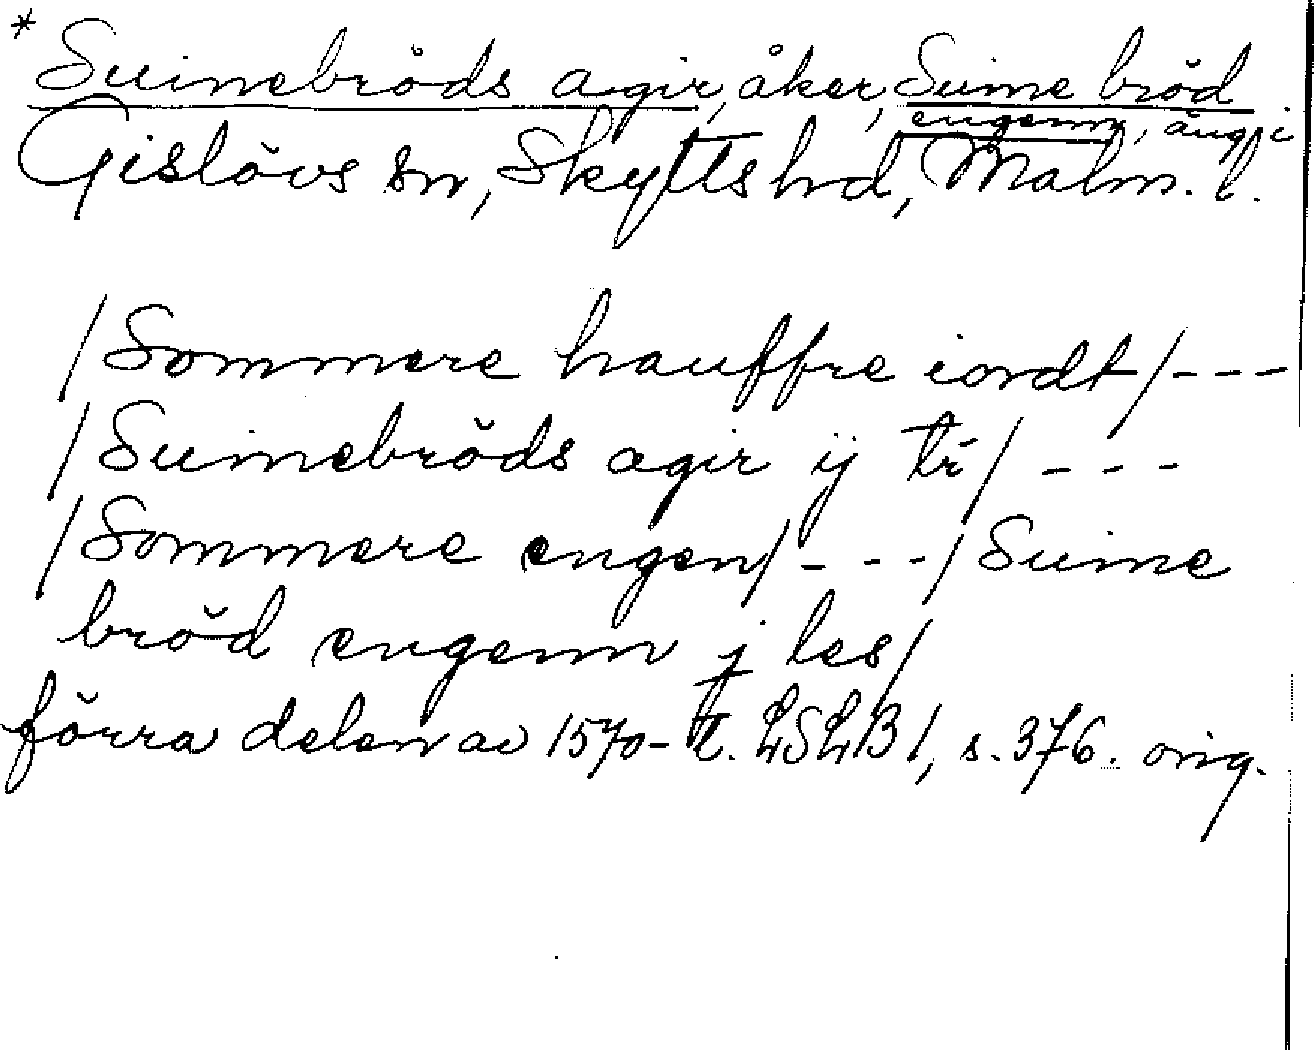 * Suinebröds agir, åker, Suine bröd
engenn, äng, i
Gislövs sn, Skytts hd, Malm. l.
/Sommere hauffre iordt/ - - -
/Suinebröds agir ij tr/ - - -
/Sommere engen/ - - - / Suine
bröd engenn j les/
förra delen av 1570- t. LSLB 1, s. 376. orig.